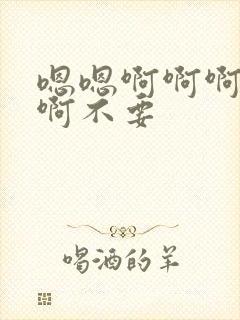 嗯嗯啊啊啊
啊不要
喝酒的羊